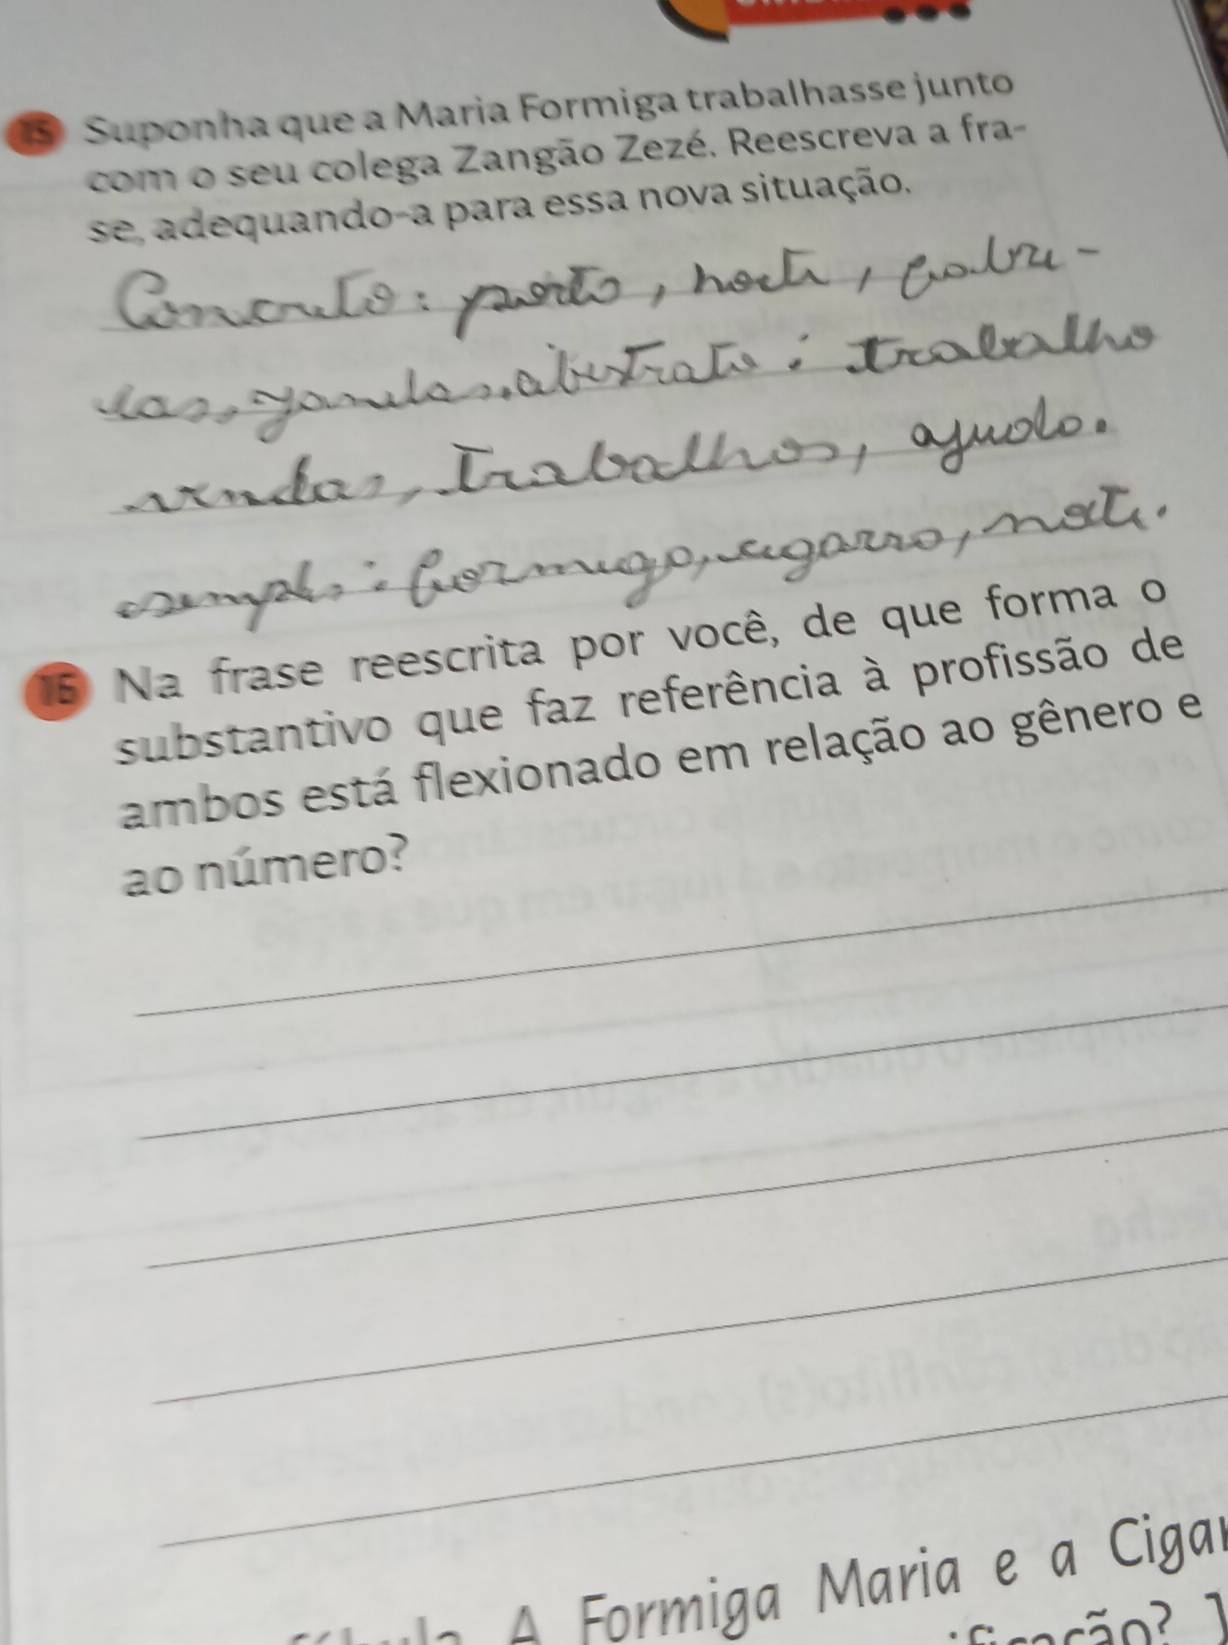 15 Suponha que a Maria Formiga trabalhasse junto
com o seu colega Zangão Zezé. Reescreva a fra-
se, adequando-a para essa nova situação.
porta,
trabalho
vendas, Trabalhos, ajuda.
formiga, cigarro, note.
16 Na frase reescrita por você, de que forma o
substantivo que faz referência à profissão de
ambos está flexionado em relação ao gênero e
ao número?
A Formiga Maria e a Cigar